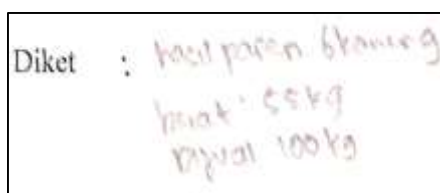 Diket : hasil panen 6 karung
berat 55 kg
Dijual 100 kg